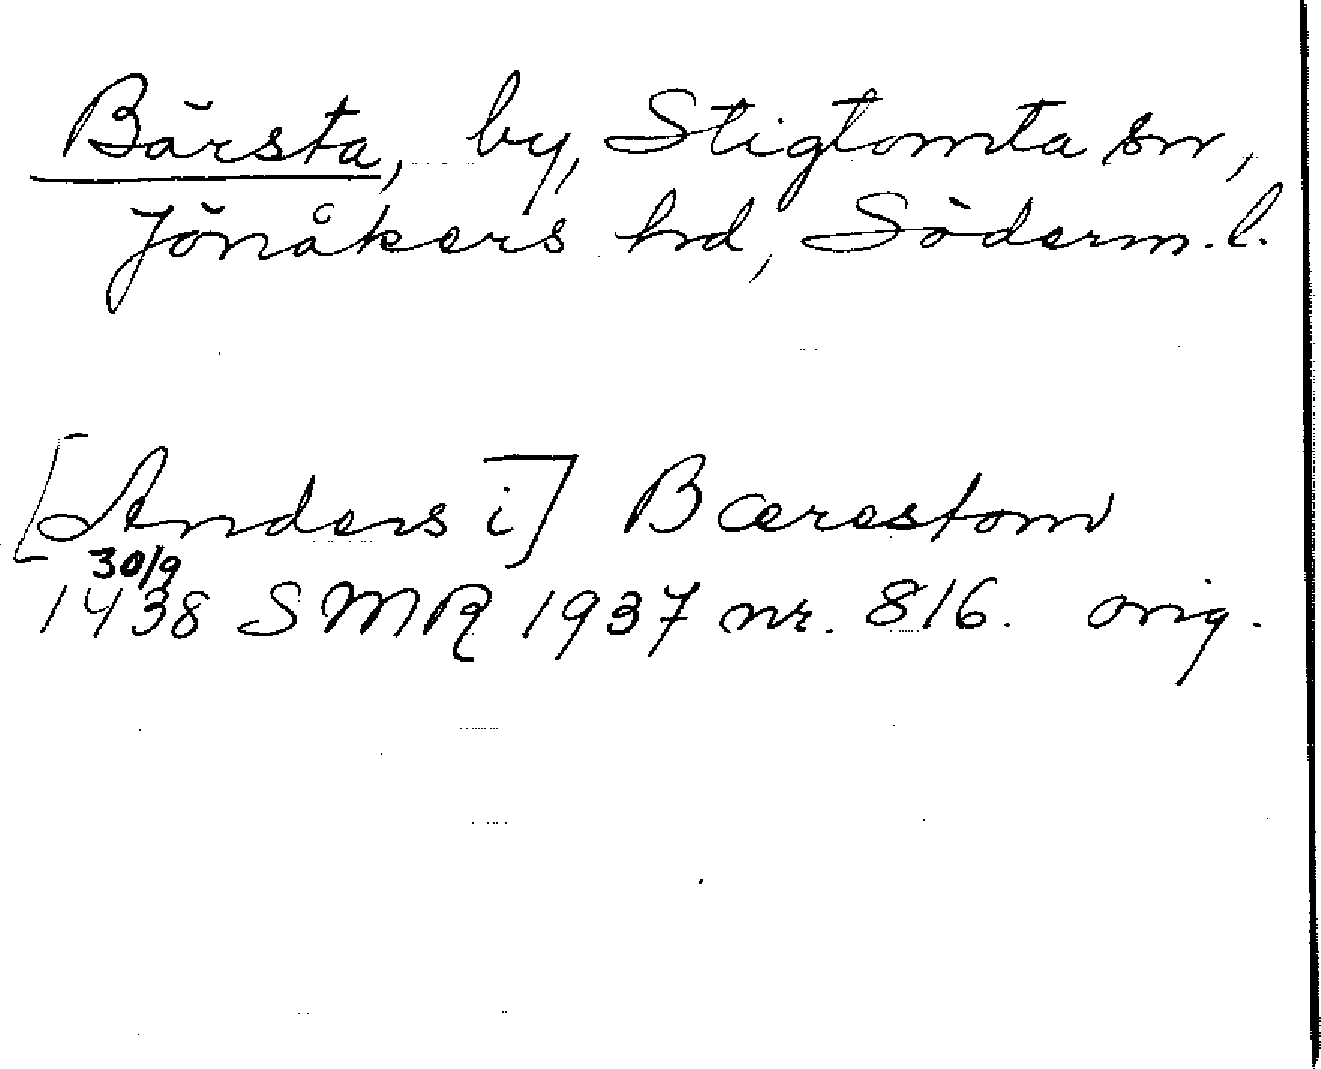 Bärsta, by, Stigtomta sn,
Jönåkers hd, Söderm. l.
[Anders i] Bærestom
30/9
1438 SMR 1937 nr. 816. orig.